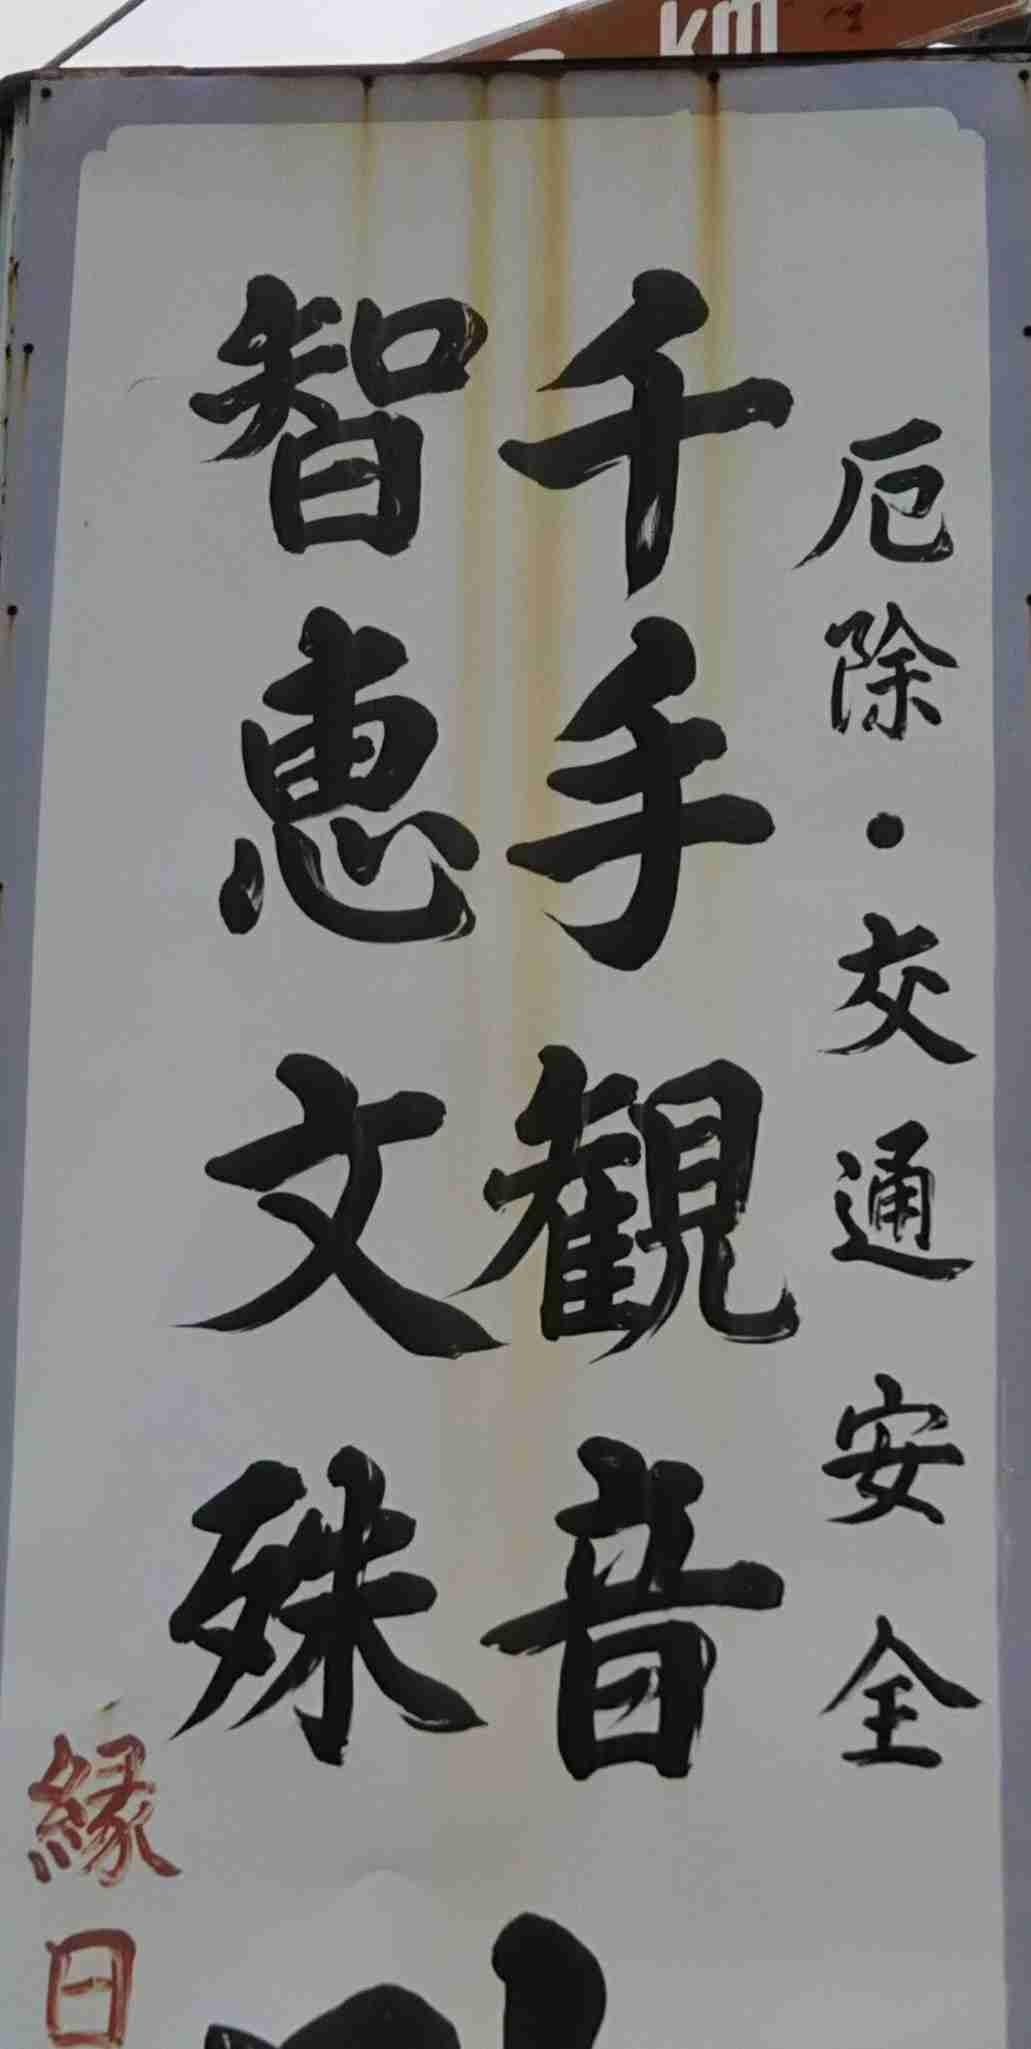 km
厄除・交通安全
千手観音
智恵文殊
縁日